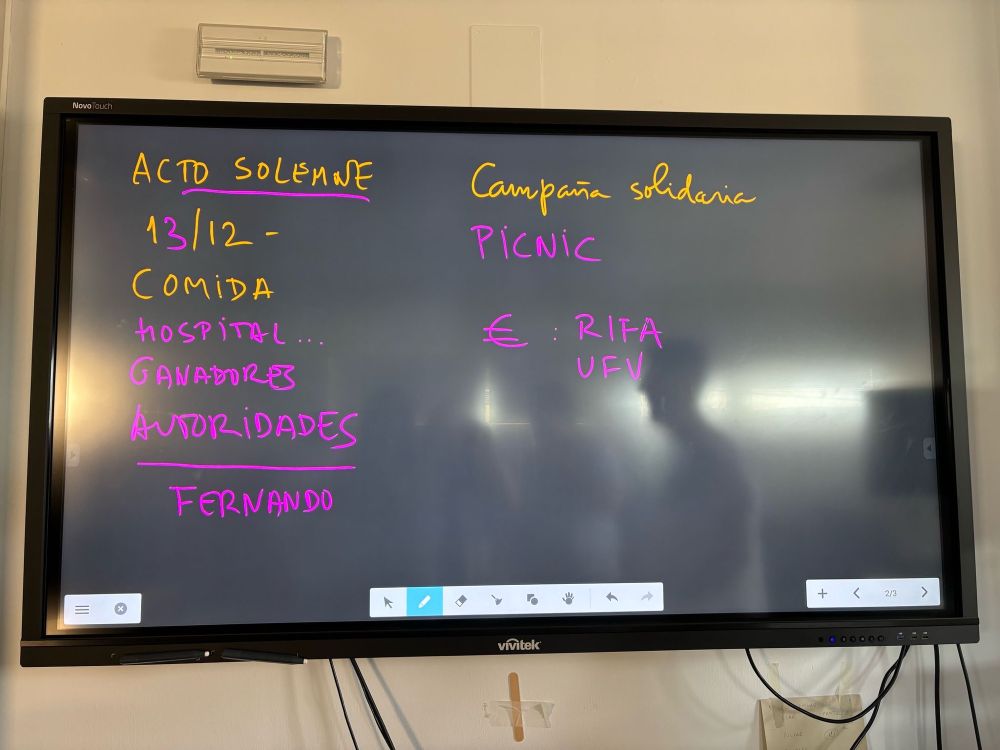 NovoTouch
ACTO SOLEMNE
13/12 -
COMIDA
HOSPITAL...
GANADORES
AUTORIDADES
FERNANDO
Campaña solidaria
PICNIC
€ : RIFA
UFV
2/3
vivitek